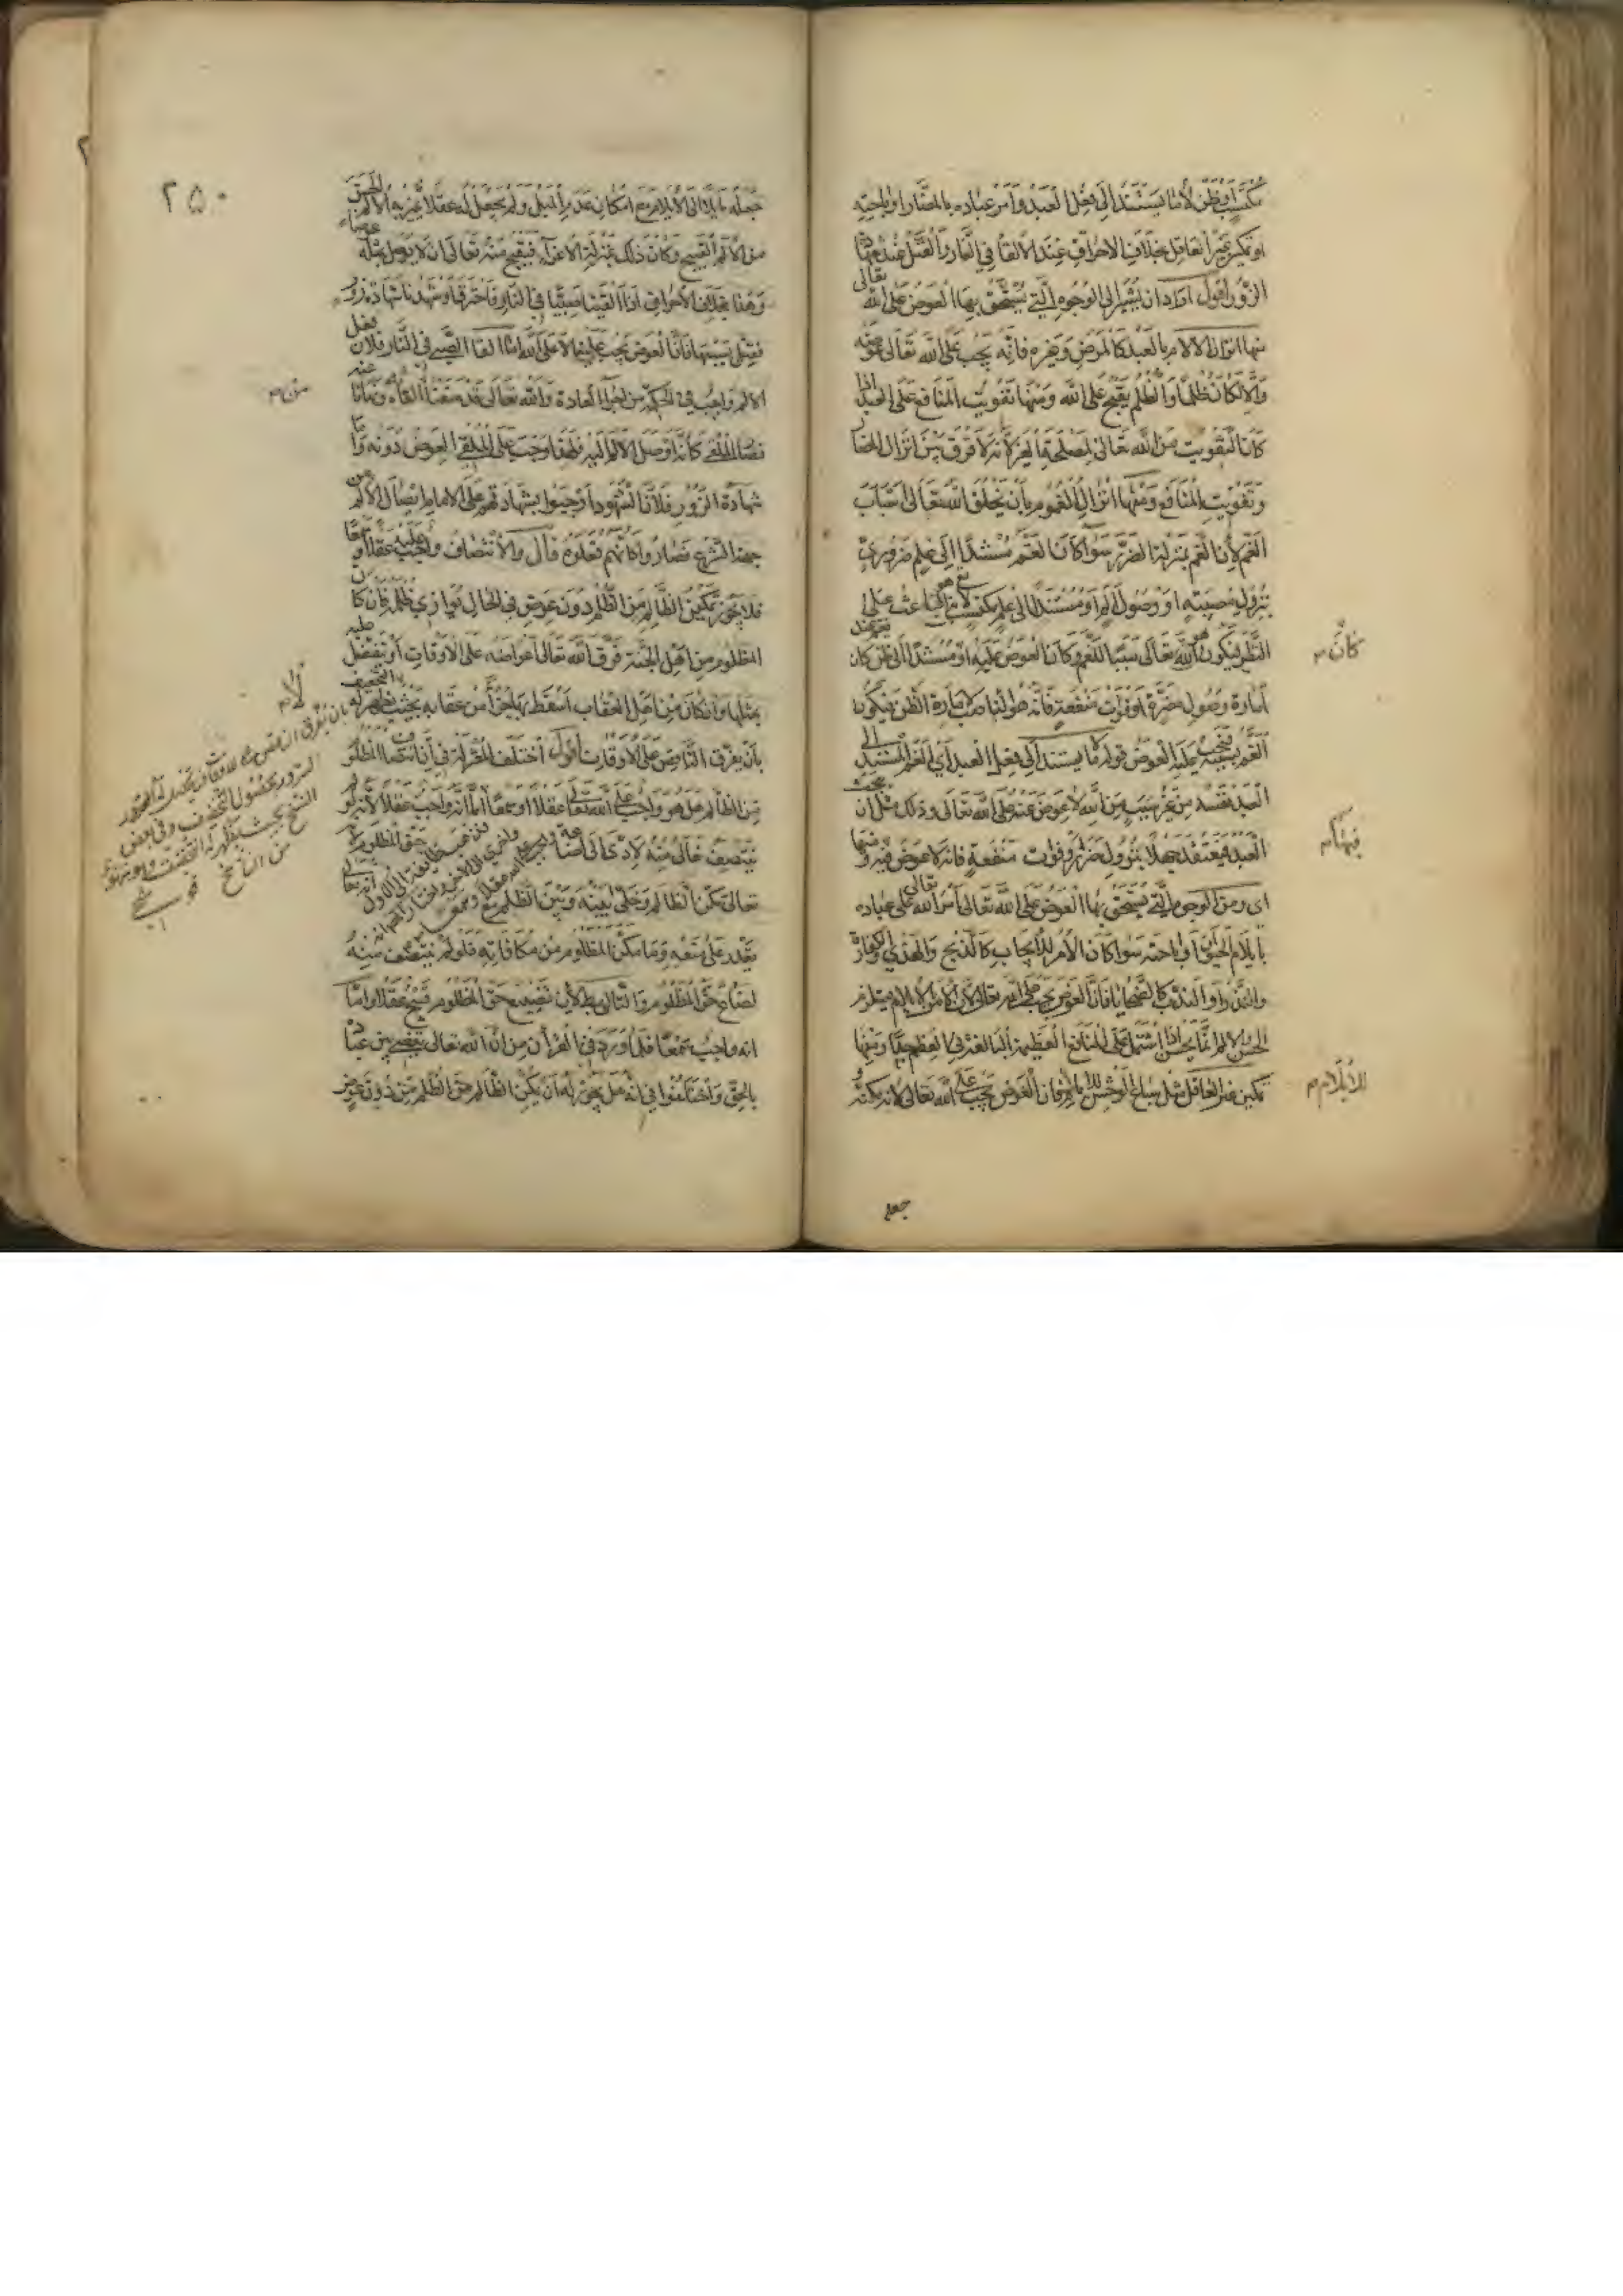 مكتسب او ظن لا ما يستند الى فعل العبد وامر عباده بالمضار او اباحته
او تمكين غير العاقل بخلاف الاحراق عند الالقاء في النار والقتل عند شهادة
الزور اقول اراد ان يشير الى الوجوه التي يستحق بها العوض على الله تعالى
منها انزال الآلام بالعبد كالمرض وغيره فانه يجب على الله تعالى عوضه
والا لكان ظلما والظلم يقبح على الله ومنها تفويت المنافع على العبد اذا
كان التفويت من الله تعالى لمصلحة الغير لانه لا فرق بين انزال المضار
وتفويت المنافع ومنها انزال الغموم بان يخلق الله تعالى اسباب
الغم لان الغم بمنزلة الضرر سواء كان الغم مستندا الى علم ضروري
بنزول مصيبته او وصول الم او مستندا الى علم مكتسب
النظر فيكون الله تعالى سببا للغم وكان العوض عليه او مستندا الى ظن كان
كان
امارة وصول مضرة او فوات منفعة فانه هو الناصب لامارة الظن فيكون
الغم بسببه فيجب عليه العوض قوله لا ما يستند الى فعل العبد اي الغم المستند الى
العبد نفسه من غير سبب من الله لا عوض عنه على الله تعالى وذلك مثل ان
العبد فيعتقد جهلا بنزول ضرر او فوات منفعة فانه لا عوض فيه ومنها
فيها
اى ومن الوجوه التي يستحق بها العوض على الله تعالى امر الله تعالى عباده
بايلام الحيوان او اباحته سواء كان الامر للايجاب كالذبح والهدي والكفارة
والنذر او الندب كالضحايا فان العوض يجب على الله تعالى لان الامر بالايلام يستلزم
الحسن والالم انما يحسن اذا اشتمل على المنافع العظيمة البالغة في العظم جدا ومنها
تمكين غير العاقل مثل سباع الوحش فان العوض يجب على الله تعالى لانه مكنه و
للايلام
جعله
٢٥٠
جعله مايلا الى الايلام مع امكان عدم الميل ولم يجعل له عقلا يميز به الالم الحسن
من الالم القبيح وكان ذلك بمنزلة الاغراء فيقبح منه تعالى ان لا يوصل عوضا
وهذا بخلاف الاحراق اذا القينا صبيا في النار فاحترق او شهدنا شهادة زور
فقتل بسببها فان العوض يجب علينا لا على الله اما القاء الصبي في النار فلان فعل
الالم واجب في الحكمة من اجراء العادة والله تعالى قد منعنا القاءه ونهانا عنه
من
فصار الملقي كانه اوصل الالم اليه فلهذا وجب على الملقي العوض دونه واما
شهادة الزور فلان الشهود اوجبوا بشهادتهم على الامام ايصال الالم من
جهة الشرع فصاروا كانهم فعلوه قال والانتصاف واجب عليه عقلا وسمعا
فلا يجوز تمكين الظالم من الظلم دون عوض في الحال يوازي ظلمه فان كان
المظلوم من اهل الجنة فرق الله تعالى اعواضه على الاوقات او تفضل عليه
بمثلها وان كان من اهل العقاب اسقط بها جزءا من عقابه بحيث لا يظهر له التخفيف
بان يفرق الناقص على الاوقات اقول اختلف المعتزلة في ان انتصاف المظلوم
من الظالم هل هو واجب على الله تعالى عقلا او سمعا اما انه واجب عقلا لانه لو لم
ينتصف تعالى منه لادى الى اضاعة حق المظلوم لانه
تعالى مكن الظالم وخلى بينه وبين الظلم مع انه تعالى
يقدر على منعه وما مكن المظلوم من مكافاته فلو لم ينتصف منه
لضاع حق المظلوم والتالي باطل لان تضييع حق المظلوم قبيح عقلا واما
انه واجب سمعا فلما ورد في القرآن من ان الله تعالى يقضي بين عباده
بالحق واختلفوا في انه هل يجوز له ان يمكن الظالم من الظلم من دون عوض
بان يفرق الناقص على الاوقات
السرور بحصول التخفيف وفي بعض
النسخ بحيث يظهر له التخفيف وهو سهو
من الناسخ